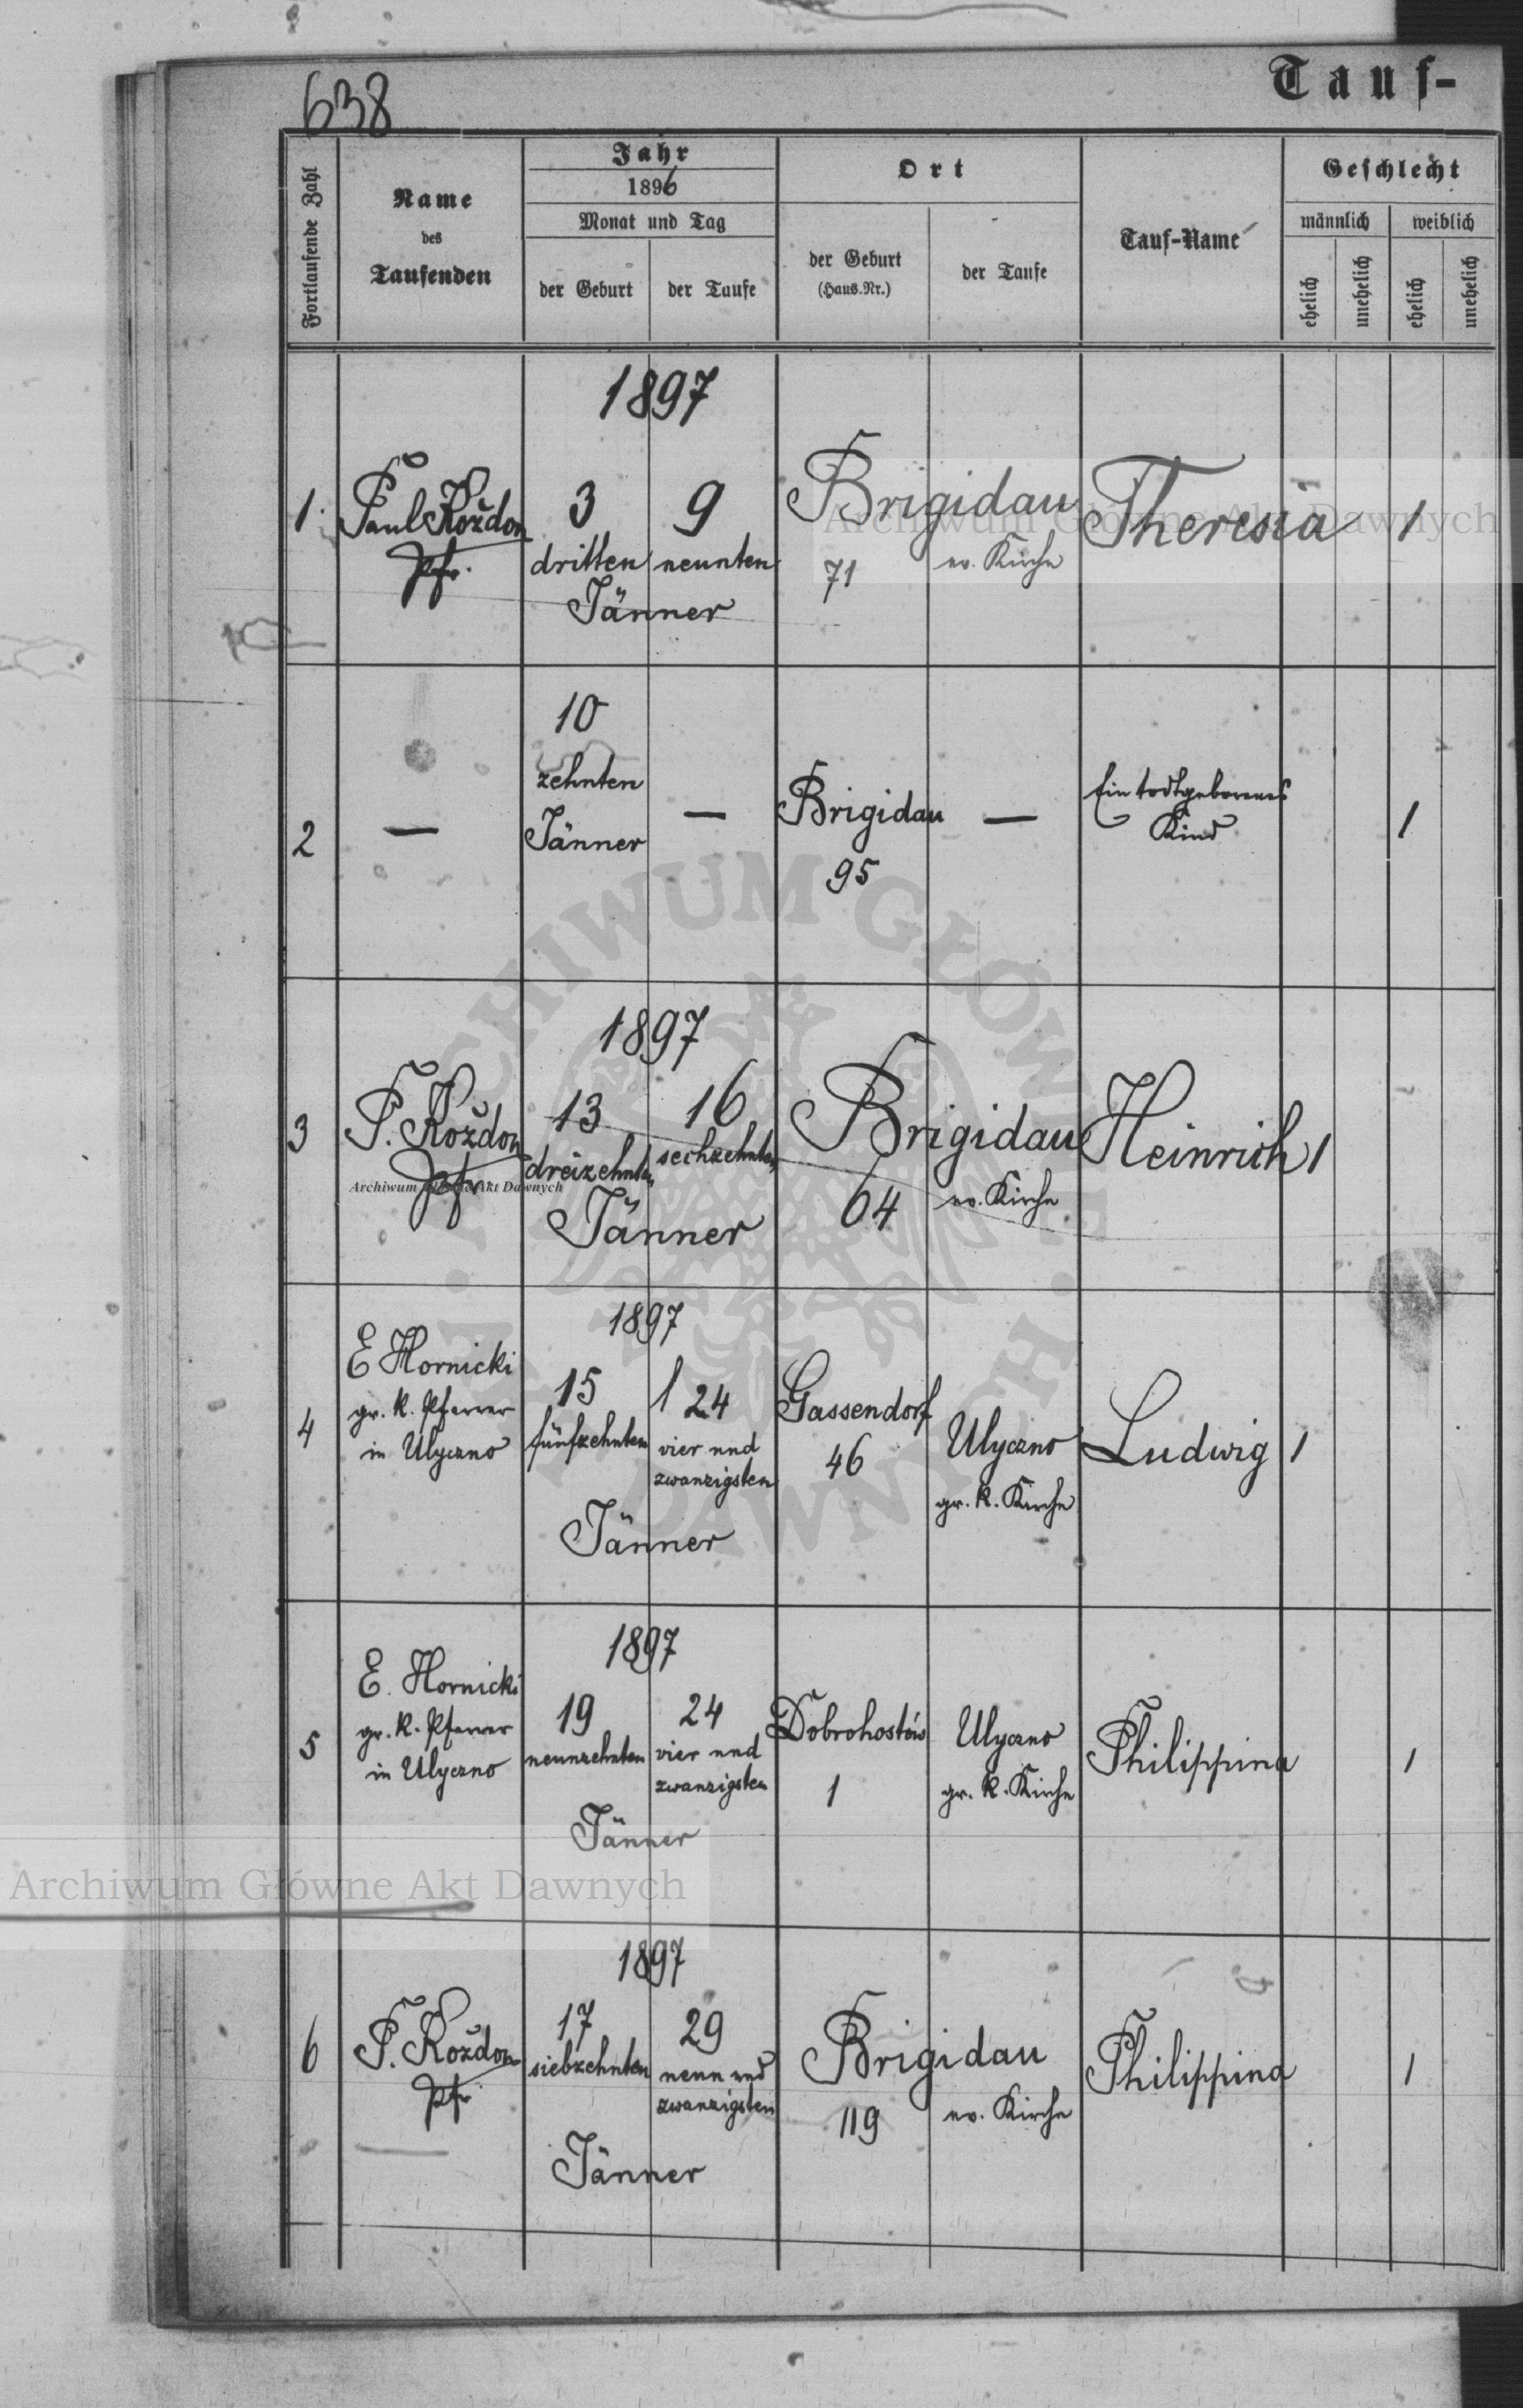 638
Tauf-
Fortlaufende Zahl
Name
des
Taufenden
Jahr
1896
Monat und Tag
der Geburt
der Taufe
Ort
der Geburt
(Haus-Nr.)
der Taufe
Tauf-Name
Geschlecht
männlich
weiblich
ehelich
unehelich
ehelich
unehelich
1897
1
Paul Kożdon
Pfr.
3
dritten
9
neunten
Jänner
Brigidau
71
ev. Kirche
Theresia
1
2
—
10
zehnten
Jänner
—
Brigidau
95
—
Ein todtgeborenes
Kind
1
1897
3
P. Kożdon
Pfr.
13
dreizehnten
16
sechzehnten
Jänner
Brigidau
64
ev. Kirche
Heinrich
1
1897
4
E Hornicki
gr. k. Pfarrer
in Ulyczno
15
fünfzehnten
24
vier und
zwanzigsten
Jänner
Gassendorf
46
Ulyczno
gr. k. Kirche
Ludwig
1
1897
5
E. Hornicki
gr. k. Pfarrer
in Ulyczno
19
neunzehnten
24
vier und
zwanzigsten
Jänner
Dobrohostów
1
Ulyczno
gr. k. Kirche
Philippina
1
1897
6
P. Kożdon
Pfr.
17
siebzehnten
29
neun und
zwanzigsten
Jänner
Brigidau
119
ev. Kirche
Philippina
1
Archiwum Główne Akt Dawnych
Archiwum Główne Akt Dawnych
Archiwum Główne Akt Dawnych
ARCHIWUM GŁÓWNE AKT DAWNYCH